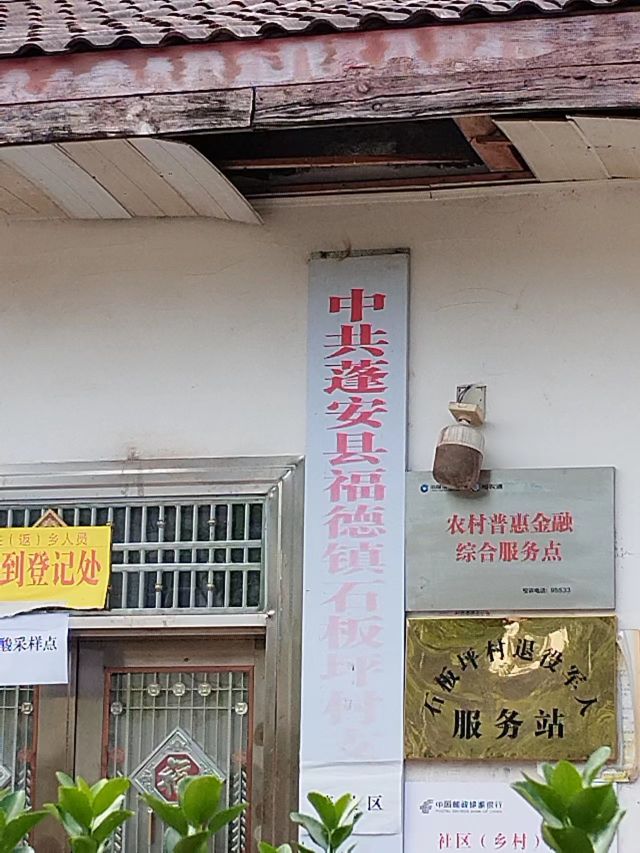 中共蓬安县福德镇石板坪村支
(返)乡人员
到登记处
酸采样点
农村普惠金融
综合服务点
95533
石板坪村退役军人
服务站
福
区
中国邮政储蓄银行
社区(乡村)